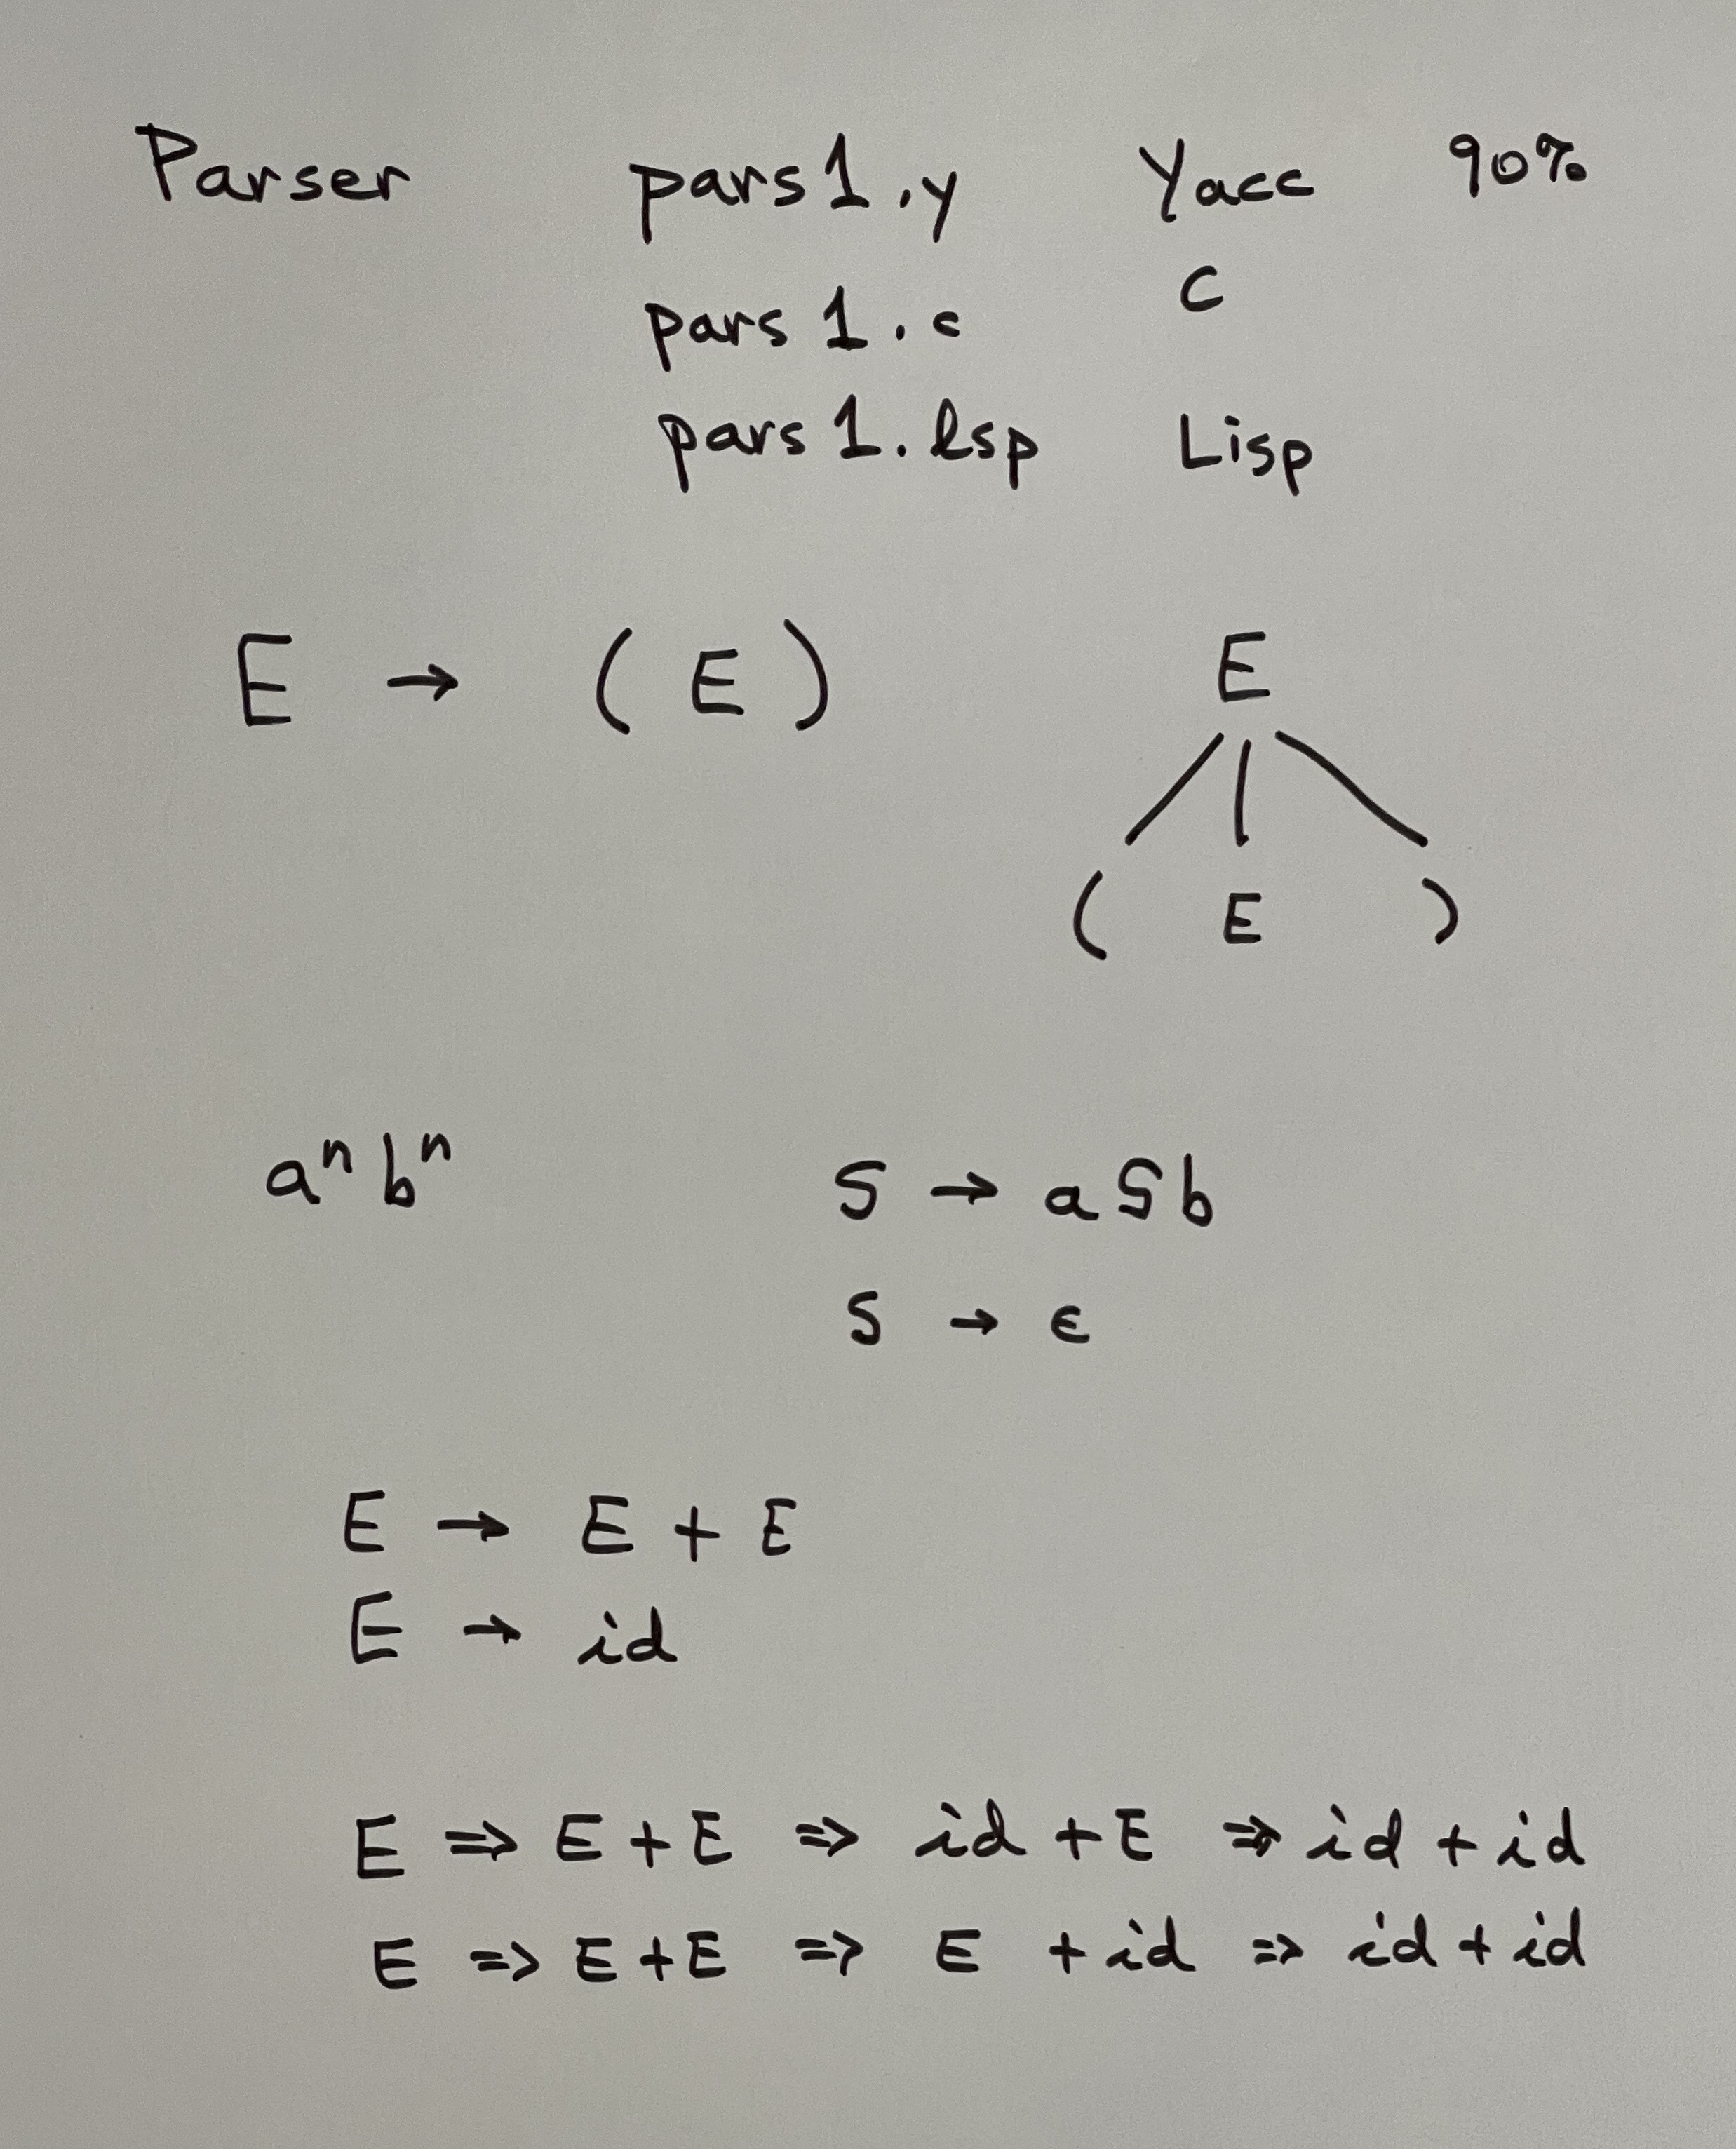 Parser pars1.y Yacc 90%
pars1.c C
pars1.lsp Lisp
E → ( E ) E
( E )
aⁿbⁿ S → aSb
S → ϵ
E → E + E
E → id
E ⇒ E + E ⇒ id + E ⇒ id + id
E ⇒ E + E ⇒ E + id ⇒ id + id